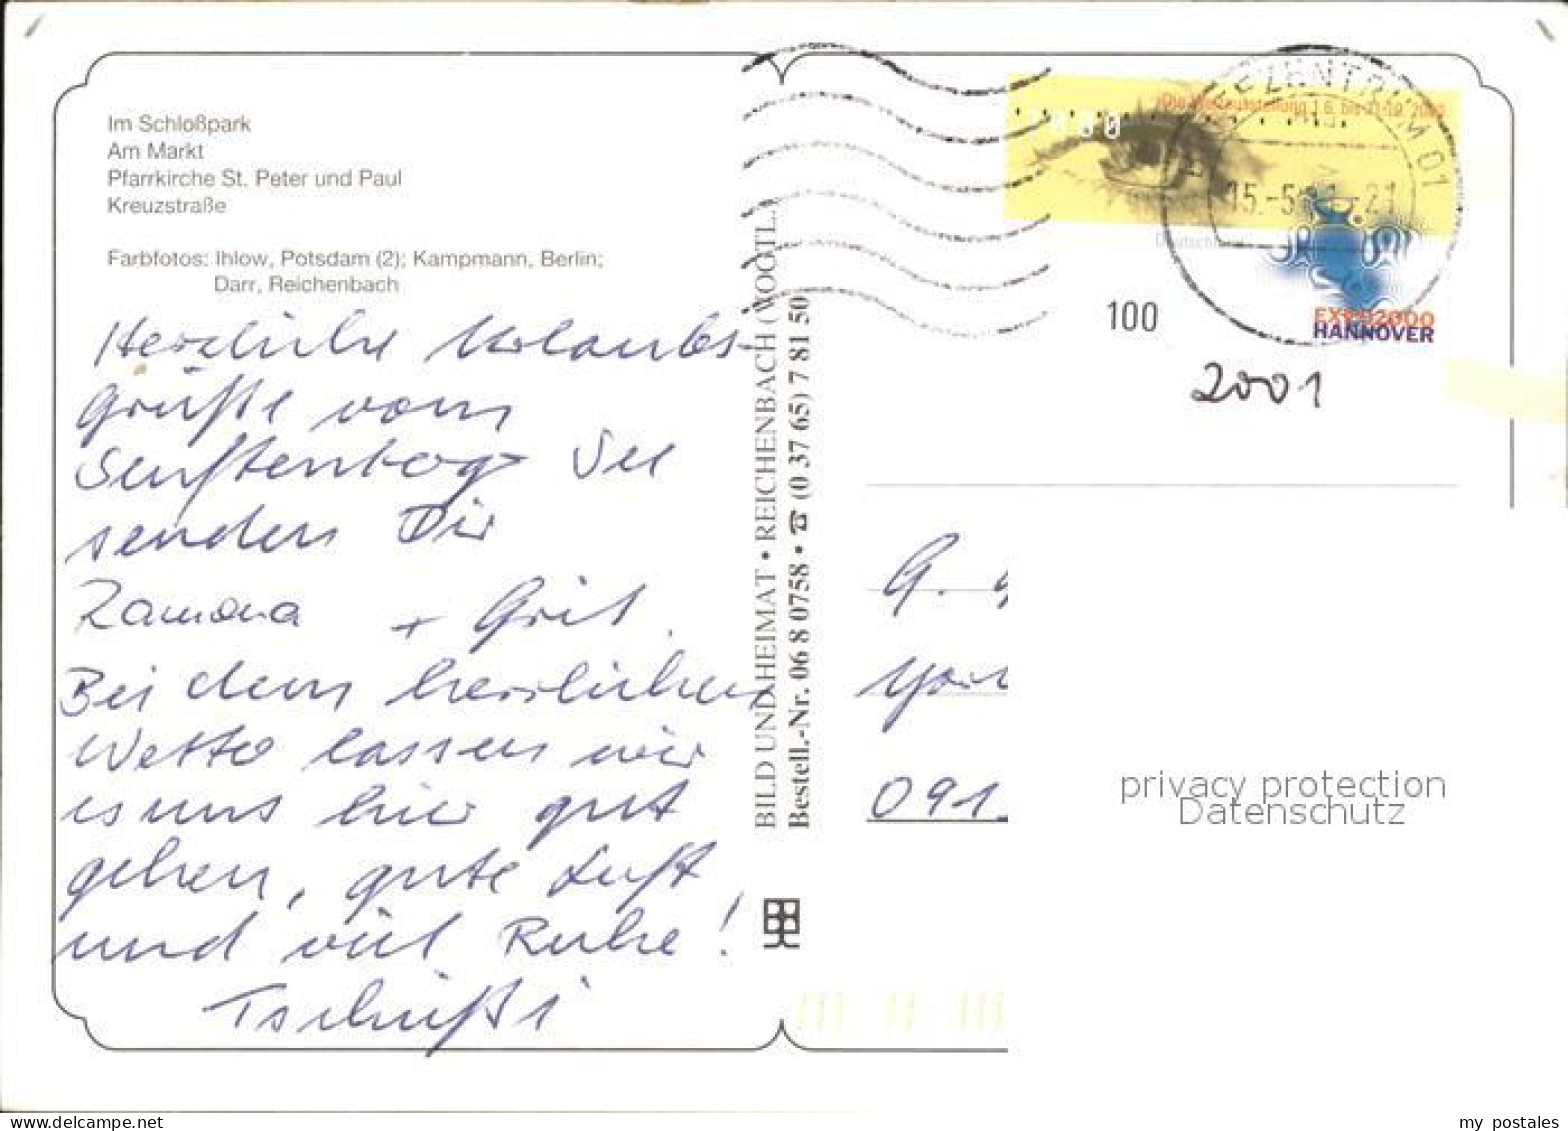 Im Schloßpark
Am Markt
Pfarrkirche St. Peter und Paul
Kreuzstraße
Farbfotos: Ihlow, Potsdam (2); Kampmann, Berlin;
Darr, Reichenbach
Herzliche Urlaubs-
grüße vom
Senftenbg See
senden Dir
Ramona + Grit.
Bei dem herrlichen
Wetter lassen wir
es uns hier gut
gehen, gute Luft
und viel Ruhe!
Tschüßi
BILD UND HEIMAT • REICHENBACH (VOGTL.)
Bestell.-Nr. 06 8 0758 • ☎ (0 37 65) 7 81 50
Die Weltausstellung 1.6. bis 31.10. 2000
Deutschland
100
EXPO2000
HANNOVER
BRIEFZENTRUM 01
15.-5. 21
2001
G.
091
privacy protection
Datenschutz
my postales